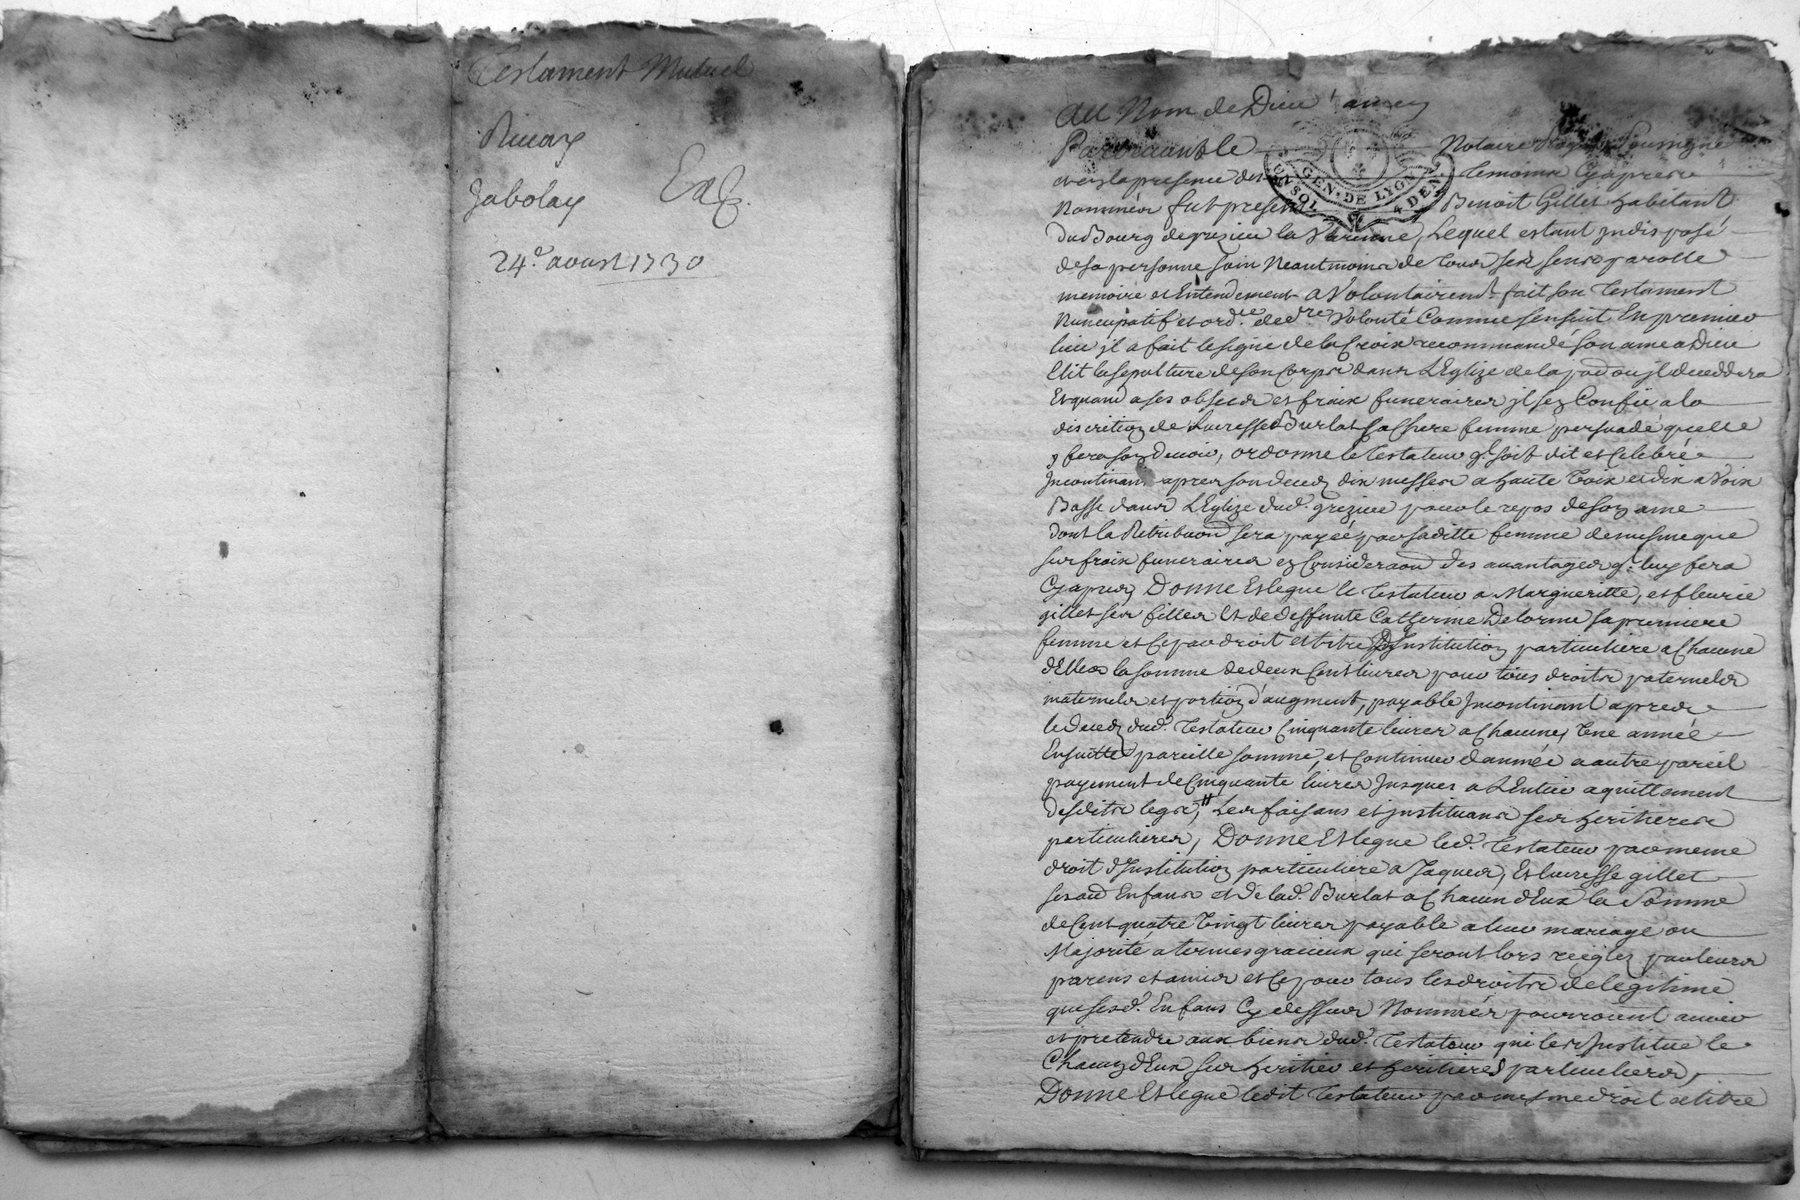 Testament Mutuel
Ruay
Jabolay
Exp.
24.e aoust 1730
Au Nom de Dieu amen
Pardevant le Notaire Royal soussigné
et en la presence des temoins cy apres
Nommés fut present Benoit Gillet habitant
GEN. DE LYON
UN SOL 4 DEN
Du Bourg de grezieu la Varenne, Lequel estant jndisposé
de sa personne sain neantmoins de tous ses sens parolle
memoire et Entendement a Volontairemt. fait son Testament
Nuncupatif et ord.re de dre. Volonté Comme sensuit, En premier
lieu jl a fait le signe de la Croix recommandé son ame a Dieu
Elit la sepulture de son Corps dans L'Eglize de la ou jl deceddera
Et quand a ses obseq et fraix funeraires jl sen Confie a la
discrition de Lucresse Burlat sa Chere femme persuadé quelle
y fera son devoir, ordonne le Testateur q. soit dit et Celebré
Jncontinant apres son deced dix messes a haute Voix et dix a Voix
Basse dans L'Eglize dud. grezieu pour le repos de son ame
dont la Retribuaon sera payée par saditte femme de mesme que
ses fraix funeraires en Consideraon des avantages q. luy fera
Cy apres, Donne Et legue le Testateur a Margueritte, et fleurie
gillet ses filles Et de deffunte Catherine Delorme sa premiere
femme et Ce par droit et titre d'Institution particuliere a Chacune
d'Elles la somme de deux Cent livres pour tous droits paternels
maternels et portion d'augment, payable Jncontinant apres
le deced dud. Testateur Cinquante livres a Chacune, Une année
Ensuitte pareille somme, et Continuer d'année a autre pareil
payement de Cinquante livres Jusques a L'Entier aquittement
desdits legs, Les faisans et jnstituans ses heritieres
particulieres, Donne Et legue led. Testateur par meme
droit d'Institution particuliere a Jaques, Et lucresse gillet
ses aud Enfans et de lad. Burlat a Chacun d'Eux la Somme
de Cent quatre Vingt livres payable a leur mariage ou
Majorité a termes gracieux qui seront lors reiglez par leurs
parens et amis et Ce pour tous les droits de legitime
que sesd. Enfans Cy dessus Nommés pourroient avoir
et pretendre aux biens dud. Testateur qui les Jnstitue le
Chacun d'Eux ses heritier et heritieres particuliers,
Donne Et legue ledit Testateur par mesme droit et titre